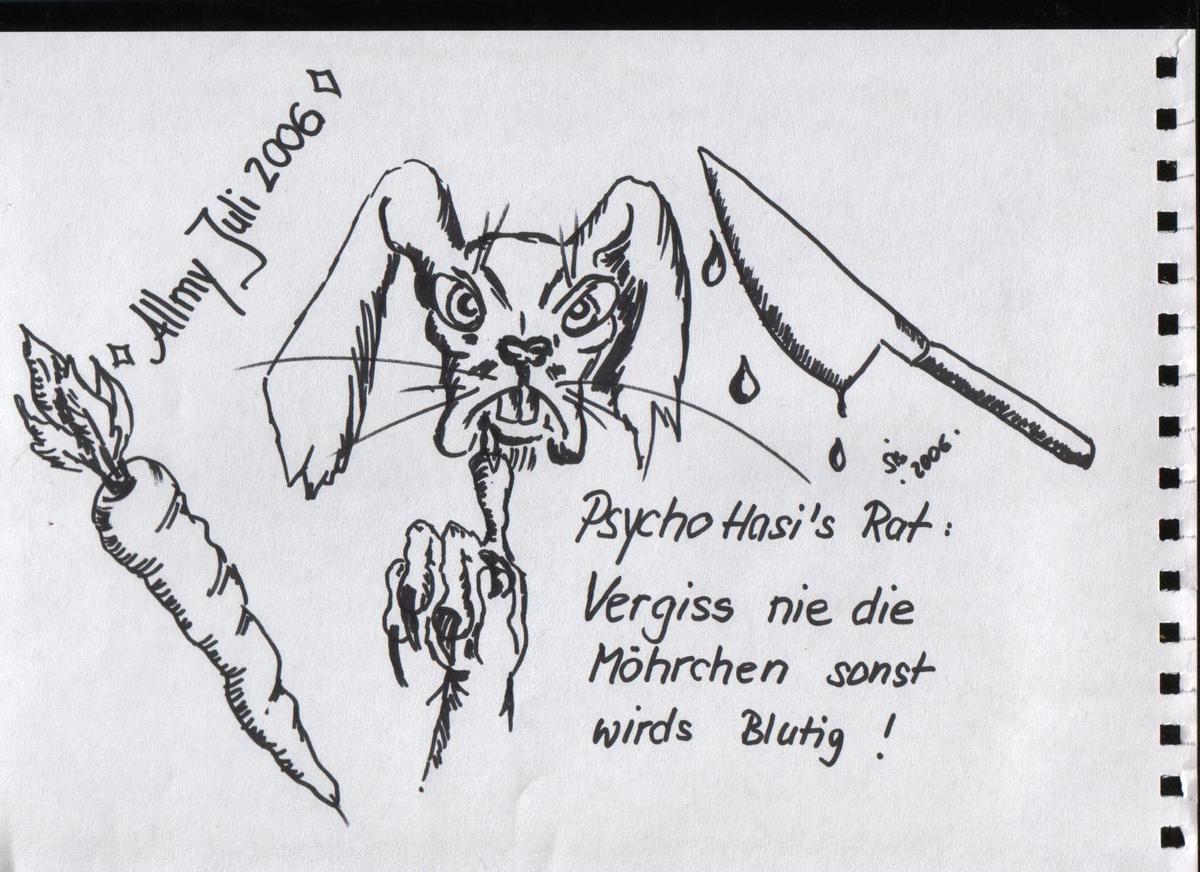 Allmy Juli 2006
SB. 2006.
Psycho Hasi's Rat:
Vergiss nie die
Möhrchen sonst
wirds Blutig !